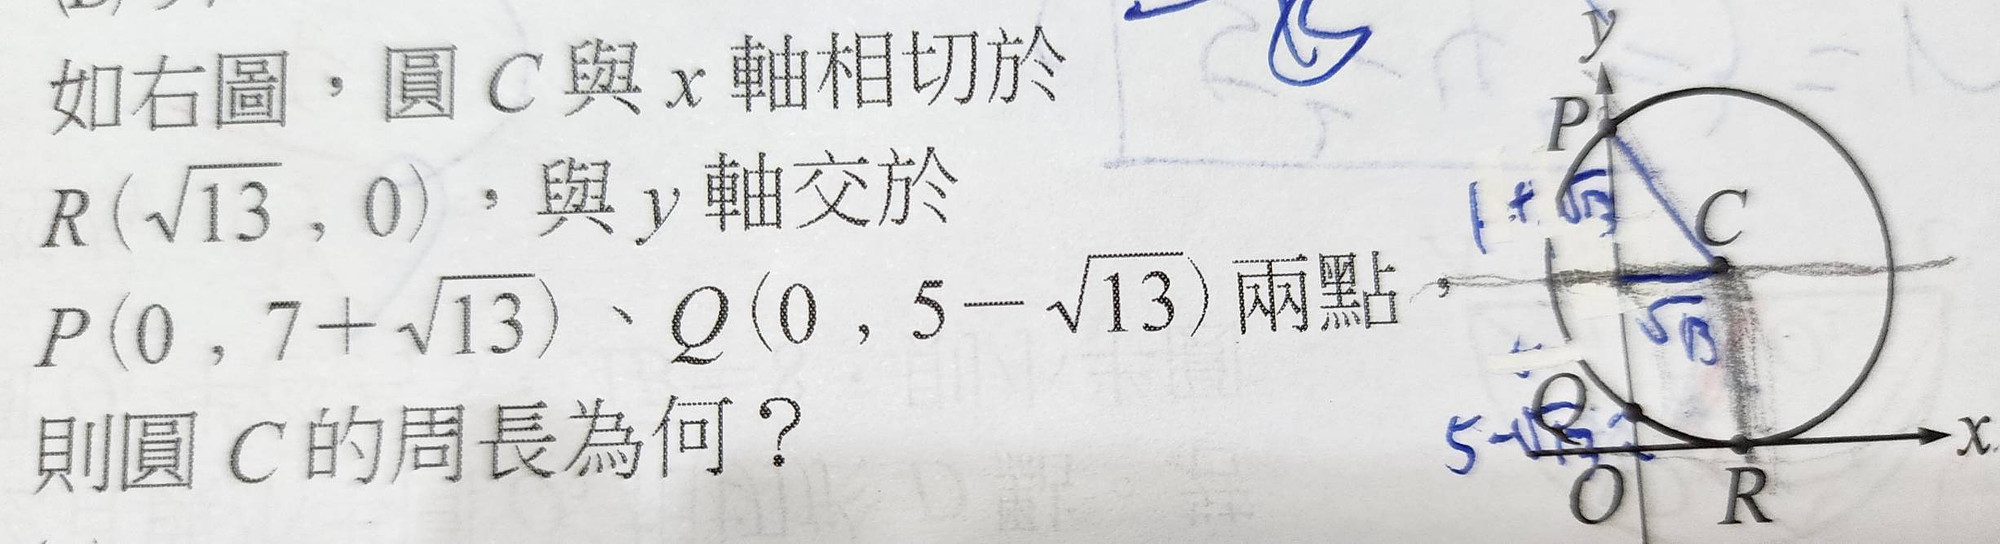 如右圖，圓 C 與 x 軸相切於
R(√13 , 0)，與 y 軸交於
P(0 , 7+√13)、Q(0 , 5-√13)兩點，
則圓 C 的周長為何？
y
P
1+√13
C
√13
Q
5-√13
O
R
x